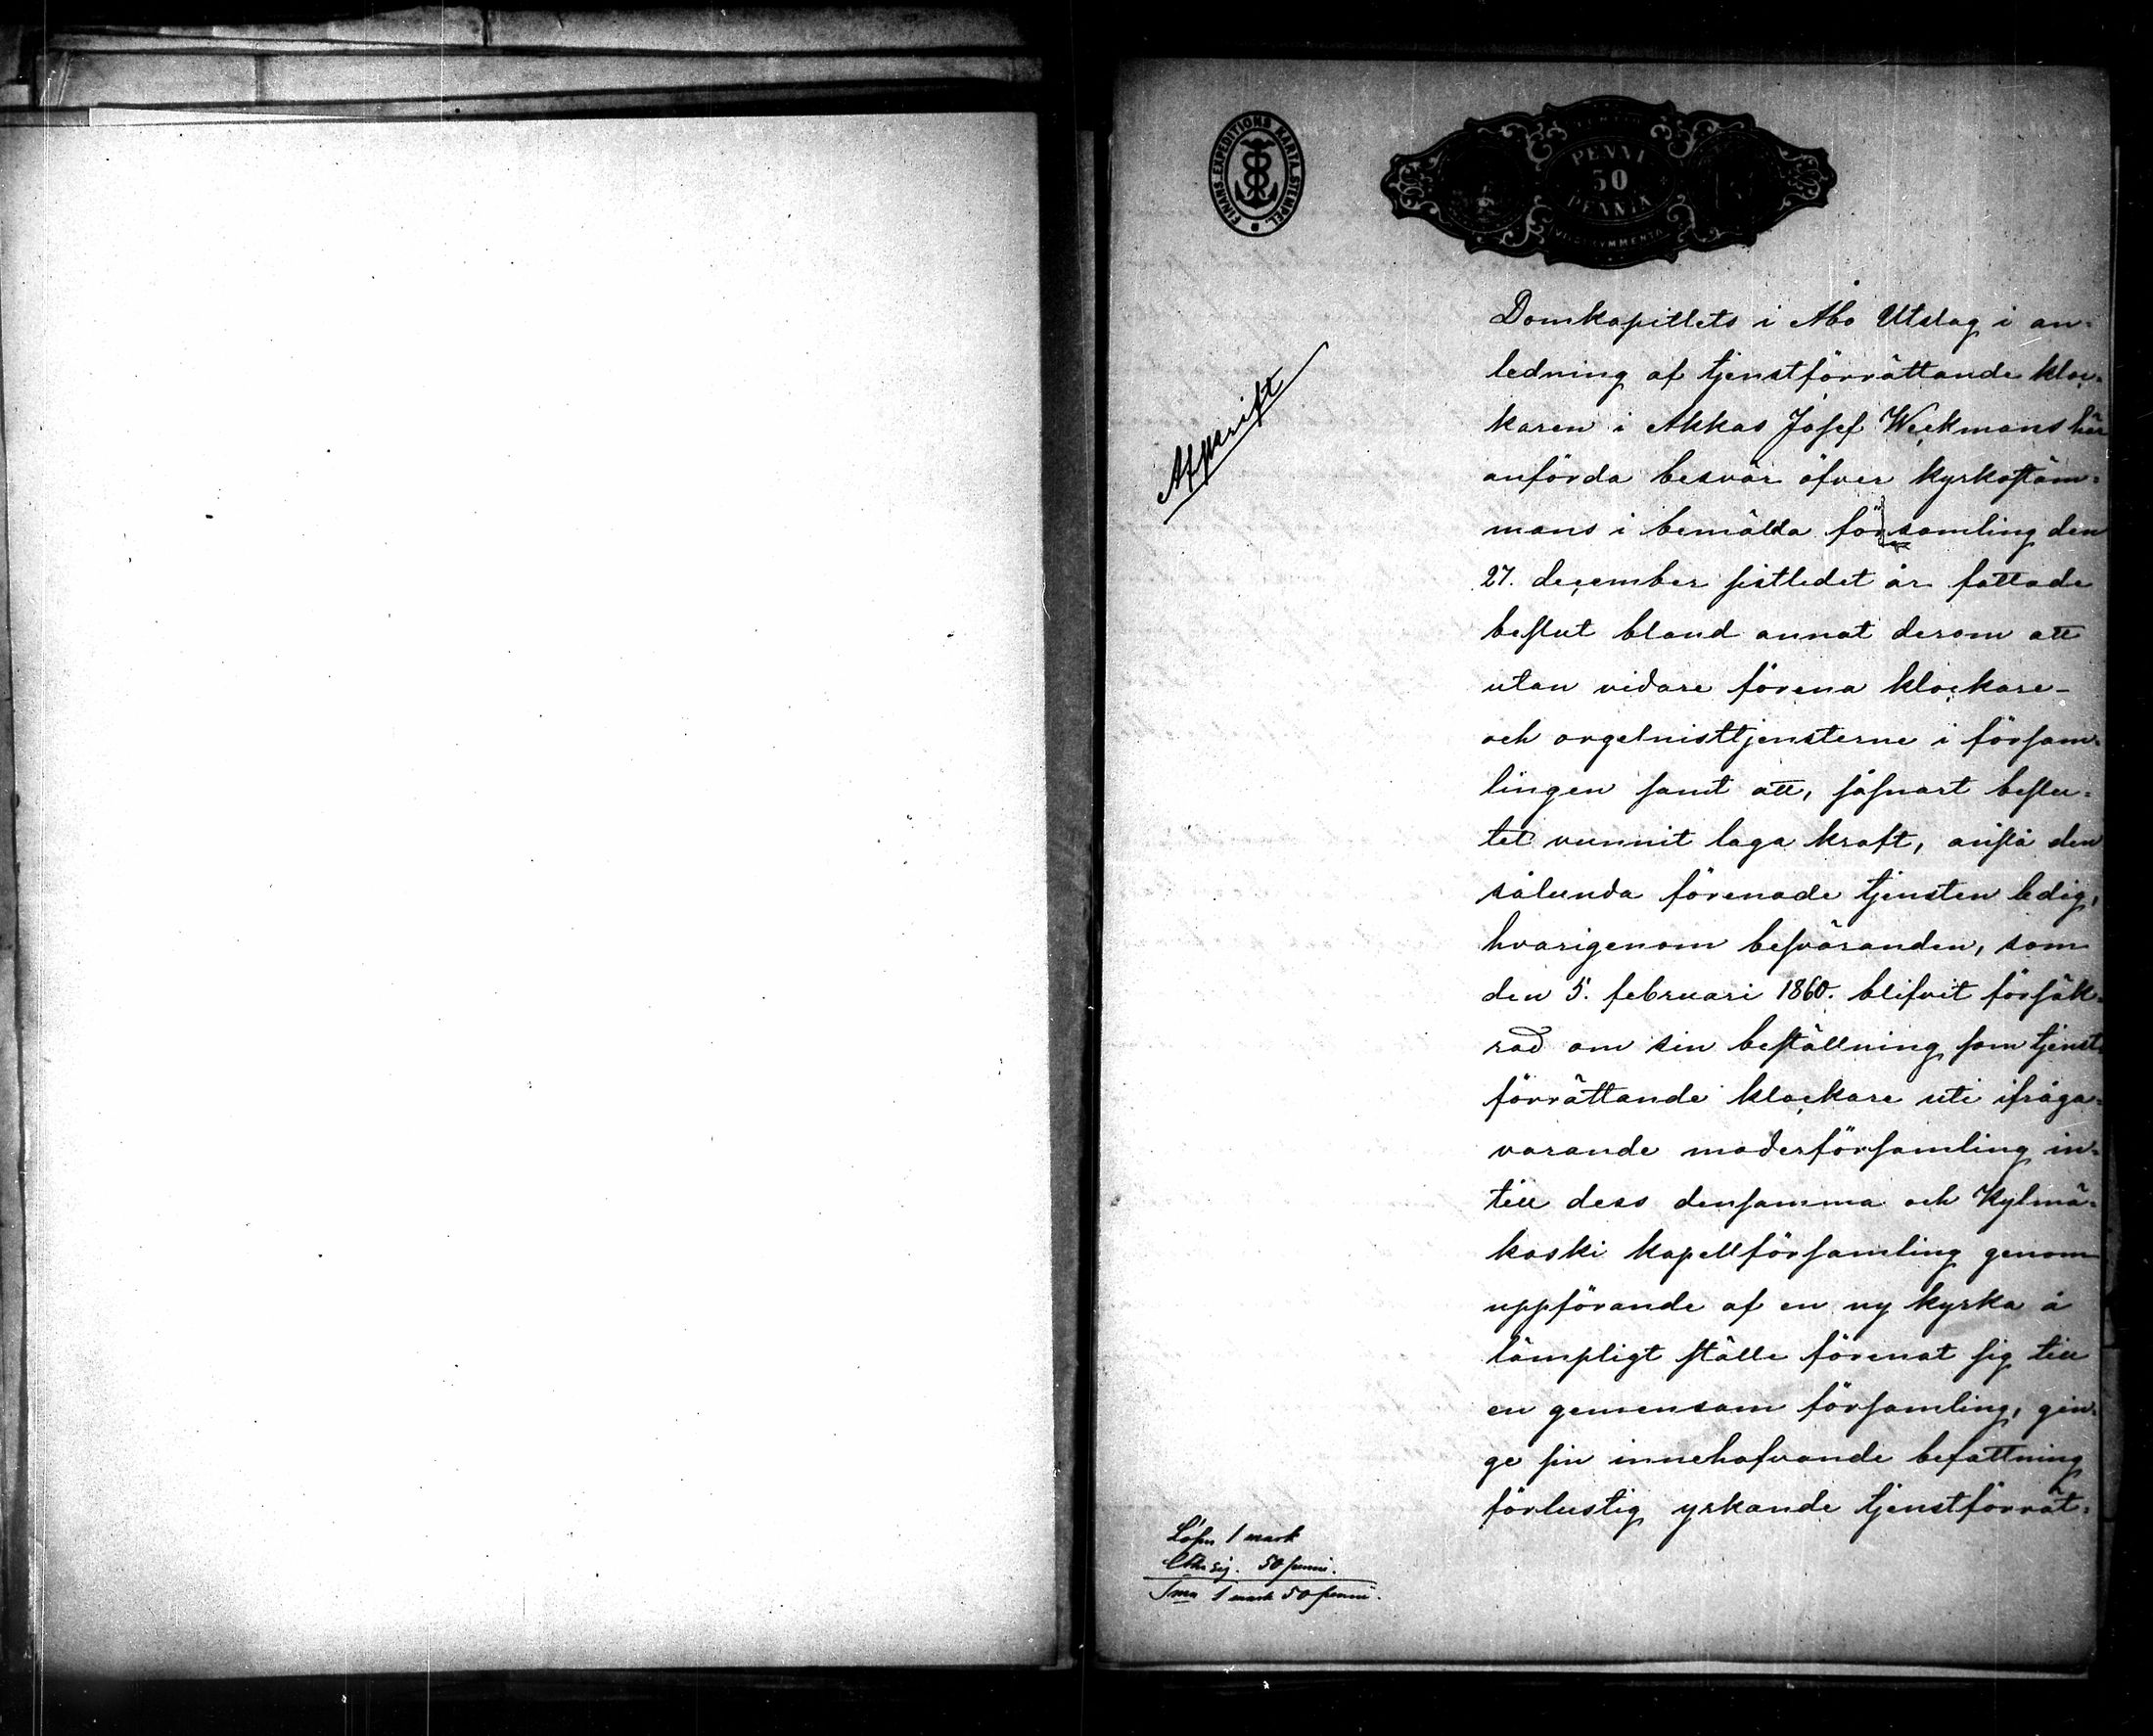 FINANS EXPEDITIONS KARTA STEMPEL
PENNI
50
PENNIÄ
Afskrift
Domkapitlets i Åbo Utslag i an-
ledning af tjenstförrättande kloc-
karen i Akkas Josef Weckmans här
anförda besvär öfver kyrkostäm-
mans i bemälda församling den
27. december sistledet år fattade
beslut bland annat derom att
utan vidare förena klockare-
och orgelnisttjensterne i försam-
lingen samt att, såsnart beslu-
tet vunnit laga kraft, anslå den
sålunda förenade tjensten ledig,
hvarigenom besväranden, som
den 5. februari 1860. blifvit försäk-
rad om sin beställning som tjenst-
förrättande klockare uti ifråga-
varande moderförsamling in-
till dess densamma och Kylmä-
koski kapellförsamling genom
uppförande af en ny kyrka å
lämpligt ställe förenat sig till
en gemensam församling, gin-
ge sin innehafvande befattning
förlustig yrkande tjenstförrät-
Lösen 1 mark
50 penni.
Sma 1 mark 50 penni.